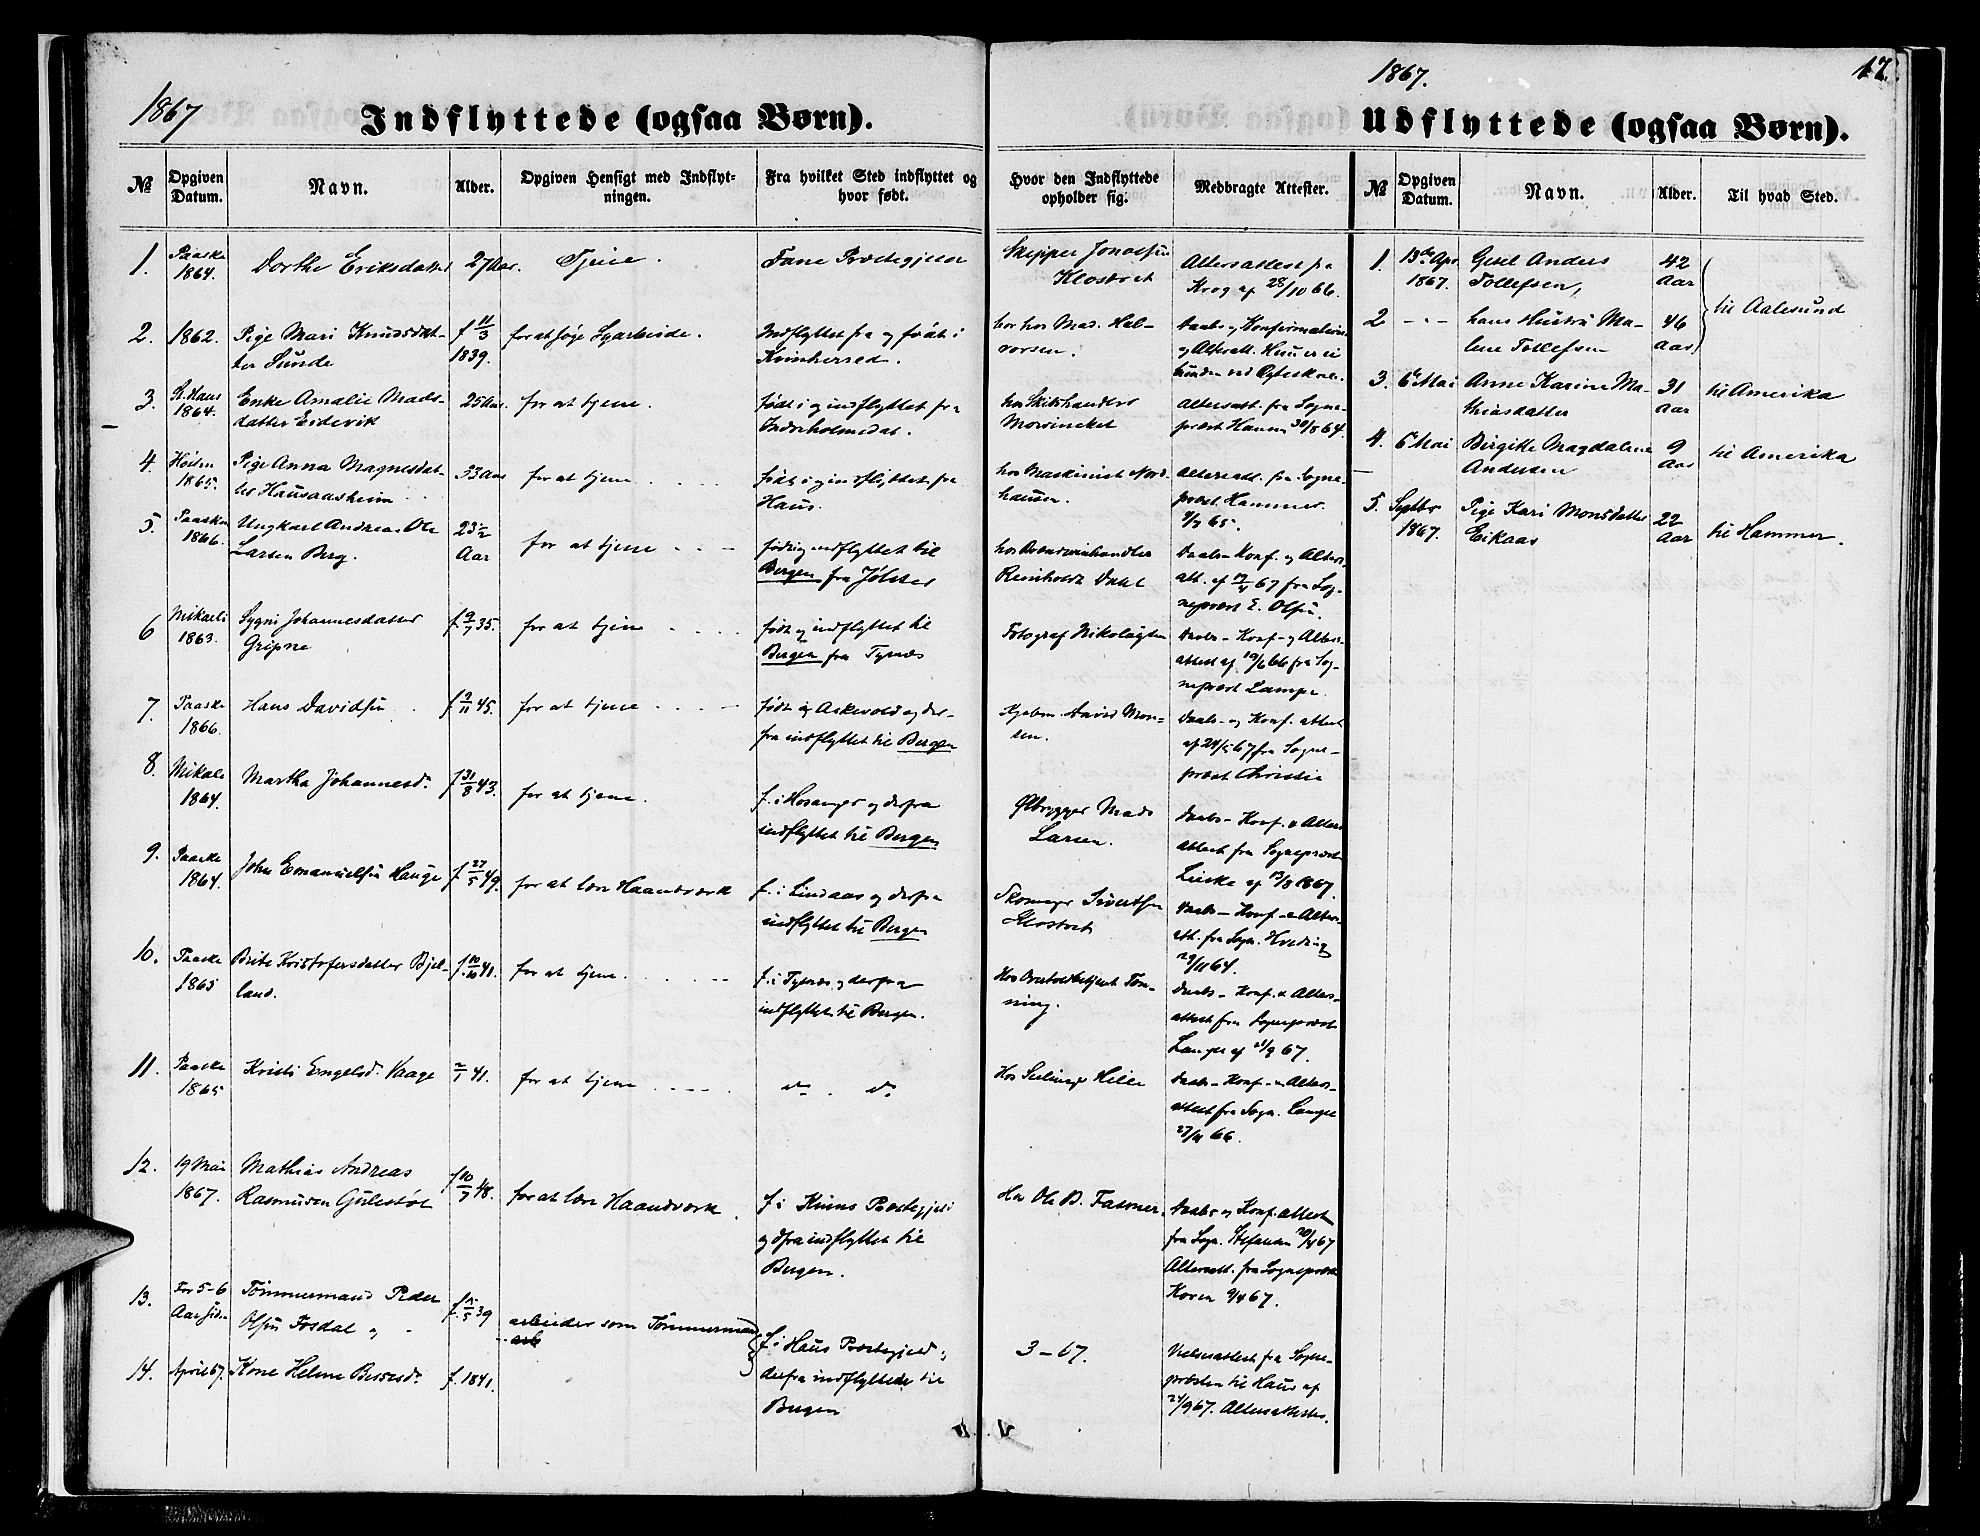 1867
Indflyttede (ogsaa Børn).
№
Opgiven Datum.
Navn.
Alder.
Opgiven Hensigt med Indflyt-
ningen.
Fra hvilket Sted indflyttet og
hvor født.
Hvor den Indflyttede
opholder sig.
Medbragte Attester.
1.
Paaske
1864.
Dorthe Eriksdatter
27 Aar.
Tjene.
Fane Præstegjeld
Skipper Jonassen
Klostret
Altersattest fra
Krog af 28/10 66.
2.
1862.
Pige Mari Knudsdat-
ter Sunde
f 11/3
1839.
for at søge Syarbeide.
Indflyttet fra og født i
Kvinherred.
hos Mad. Hal-
vorsen.
Daabs- og Konfirmations-
og Altersatt.
3.
St. Hans
1864.
Enke Amalie Mads-
datter Eidevik
25 Aar.
for at tjene.
født i og indflyttet fra
hos Skibshandler
Mowinckel
Altersatt. fra Sogne-
præst 30/8 64.
4.
Høsten
1865.
Pige Anna Magnesdat-
ter
33 Aar
for at tjene
født i og indflyttet fra
Haus.
hos Maskinist Nord-
hausen.
Altersatt. fra Sogne-
præst Hammer
65.
5.
Paasken
1866.
Ungkarl Andreas Ole
Larsen Berg.
23½
Aar
for at tjene
født og indflyttet til
Bergen fra Jølster
hos Brændevinhandler
Reinholdt Dahl
Daabs- Konf. og Alters-
att. af 67 fra Sog-
nepræst E. Olsen.
6
Mikaeli
1863.
Sygni Johannesdatter
Gripne
f. 9/7 35.
for at tjene
født og indflyttet til
Bergen fra Tysnæs
Fotograf Nikolaysen
Daabs- Konf- og Alters-
attest af 19/6 66 fra Sog-
nepræst Lampe.
7.
Paaske
1866.
Hans Davidsen
f. 9/11 45.
for at tjene
født i Askevold og der-
fra indflyttet til Bergen
Kjøbm. Amund Mon-
sen.
Daabs- og Konf. attest
af 24/5 67 fra Sogne-
præst Christie
8.
Mikaeli
1864.
Martha Johannesd.
f. 31/8 43.
for at tjene.
f. i Hosanger og derfra
indflyttet til Bergen
Ølbrygger Mads
Larsen.
Daabs- Konf. & Alters
attest fra Sognepræst
af 13/8 1867.
9.
Paaske
1864.
John Emanuelsen Hauge
f. 27/5 49.
for at lære Haandværk
f. i Lindaas og derfra
indflyttet til Bergen
Skomager Sivertsen
Klostret
Daabs- Konf- & Alters-
att. fra Sogn. Hvoding
29/11 64.
10.
Paaske
1865
Brite Kristofersdatter Bjel-
land.
f. 10/10 41.
for at tjene.
f. i Tysnæs og derfra
indflyttet til Bergen.
Hos Tøn-
ning.
Daabs- Konf. & Alters-
attest fra Sognepræst
Lampe af 21/9 67.
11.
Paaske
1865
Kristi Engelsd. Vaage
2/1 41.
for at tjene
do. do.
Hos
Daabs- Konf- & Alters-
attest fra Sogn. Lampe
27/11 66.
12.
19 Mai
1867.
Mathias Andreas
Rasmussen Gulestøl
f 10/7 48.
for at lære Haandværk.
f. i Kinns Præstegjeld
og dfra indflyttet til
Bergen.
Hos Ole B. Fasmer.
Daabs- og Konf. attest
fra Sogn. Stefansen 20/4 67
Altersatt. fra Sognepræst
Koren 9/4 67.
13.
For 5-6
Aar siden
Tømmermand Peder
Olsen Fosdal og
f. 15/5 39
arbeider som Tømmermand
arb
f. i Haus Præstegjeld og
derfra indflyttede til
Bergen
3-67.
Vielsesattest fra Sogne-
præsten til Haus af
24/9 67. Altersattester.
14.
April 67.
Kone Helene
f. 1841.
1867.
17.
Udflyttede (ogsaa Børn).
№
Opgiven Datum.
Navn.
Alder.
Til hvad Sted.
1.
13de Apr.
1867.
Gesel Anders
Tollefsen,
42
Aar
til Aalesund
2
- " -
hans Hustru Ma-
lene Tollefsen
46
Aar
3.
6te Mai
Anne Karine Ma-
thiasdatter
31
Aar
til Amerika
4.
6te Mai
Birgitte Magdalene
Andersen
9
Aar
til Amerika
5.
Septbr
1867.
Pige Kari Monsdatter
Eikaas
22
Aar
til Hammer.